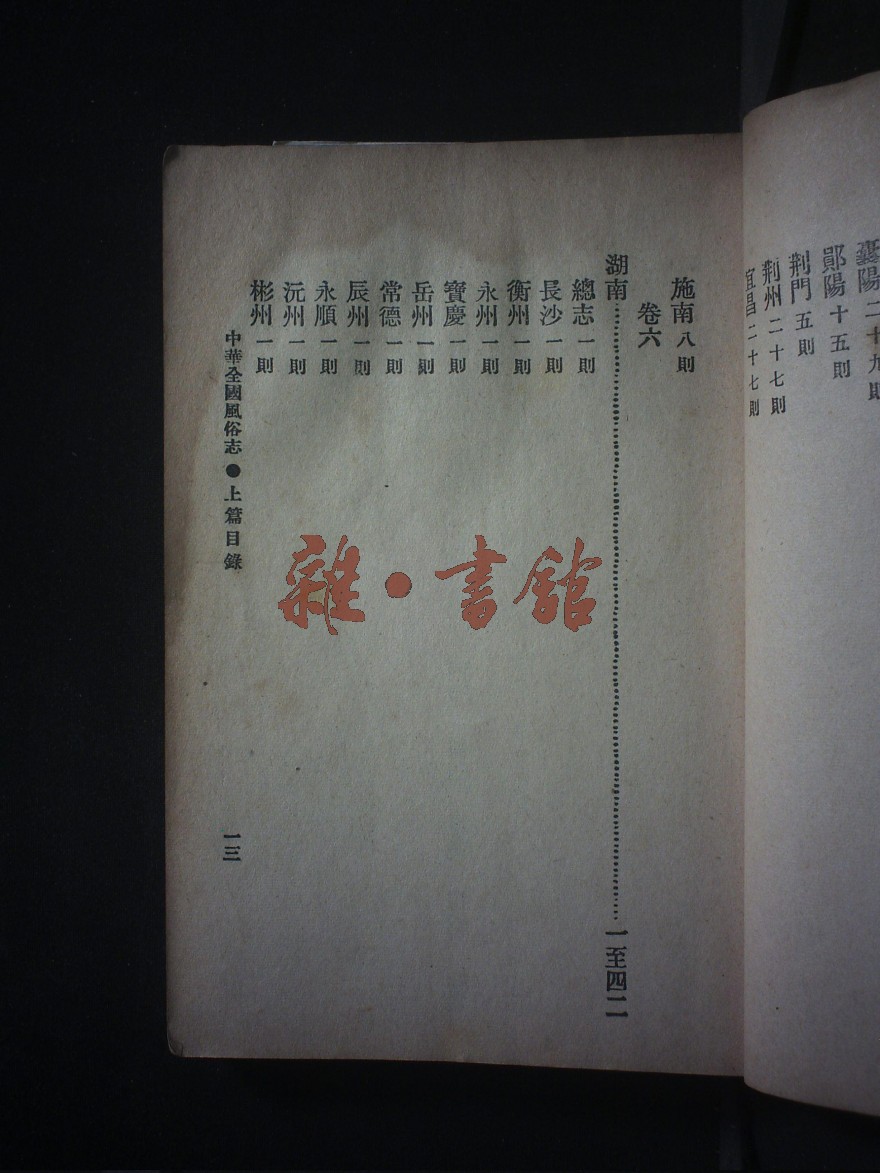 襄陽 二十九則
鄖陽 十五則
荆門 五則
荆州 二十七則
宜昌 二十七則
施南 八則
卷六
湖南……一至四二
總志 一則
長沙 一則
衡州 一則
永州 一則
寶慶 一則
岳州 一則
常德 一則
辰州 一則
永順 一則
沅州 一則
彬州 一則
中華全國風俗志●上篇目錄
一三
雜·書館